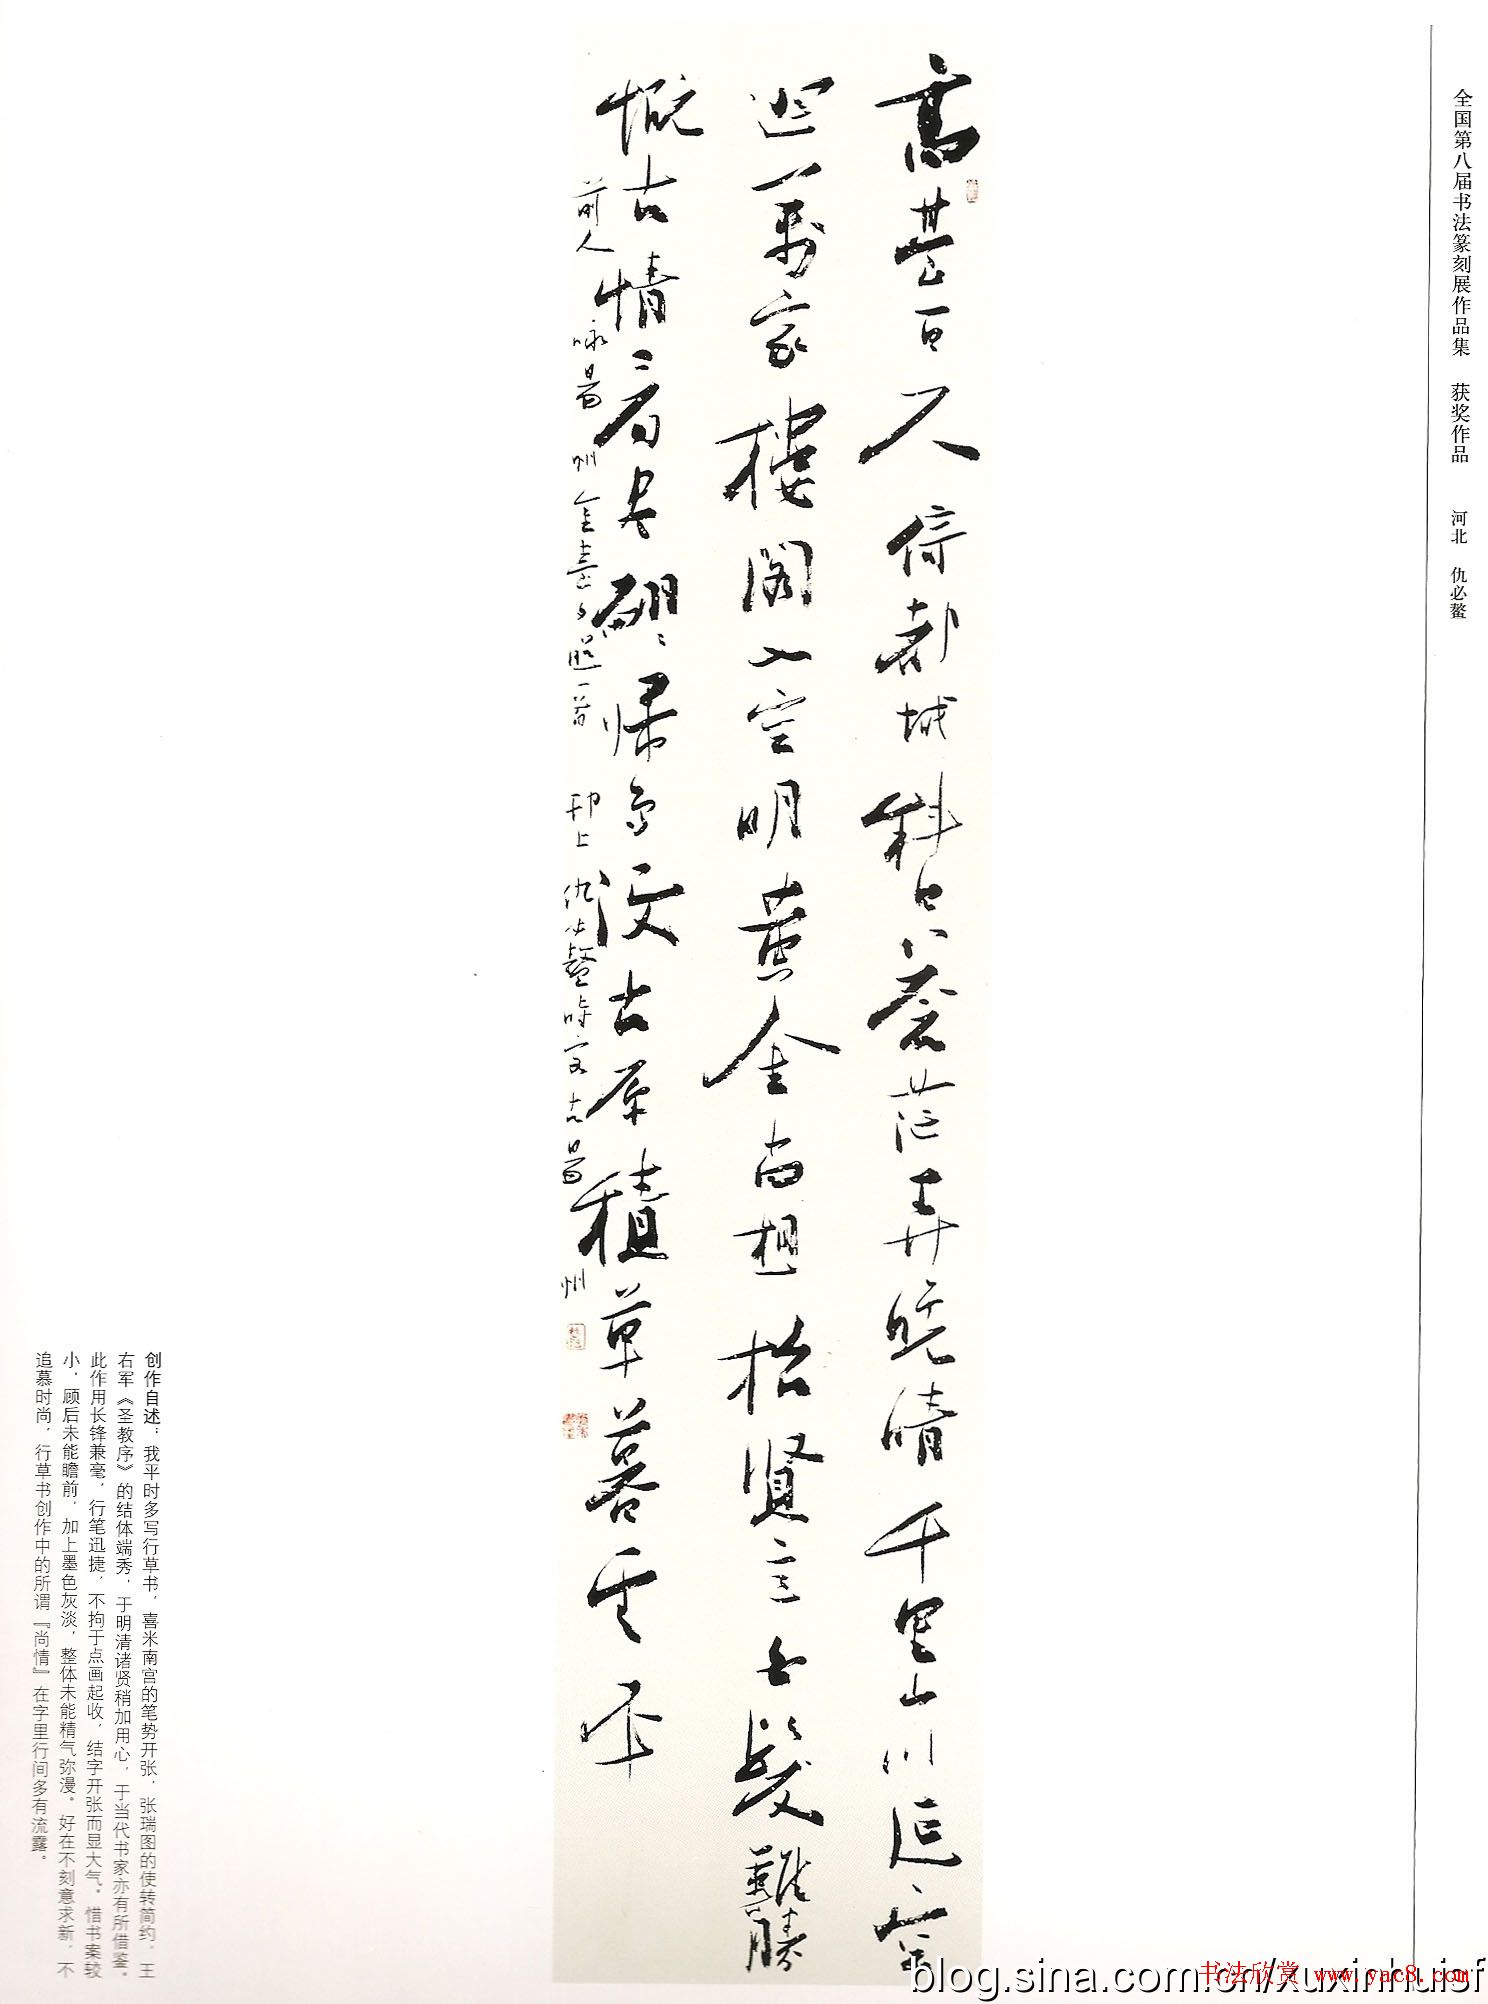 全国第八届书法篆刻展作品集 获奖作品 河北 仇必鳌
高臺百尺倚都城斜日蒼茫弄晚晴千里山川延
迥萬家樓閣入空明黄金尚想招賢意白髮難勝
慨古情看尽翩翩歸鳥没古原積草暮雲平
前人咏易州金臺夕照一首 邢上仇必鳌時客古易州
创作自述：我平时多写行草书，喜米南宫的笔势开张，张瑞图的使转简约，王
右军《圣教序》的结体端秀，于明清诸贤稍加用心，于当代书家亦有所借鉴。
此作用长锋兼毫，行笔迅捷，不拘于点画起收，结字开张而显大气。惜书案较
小，顾后未能瞻前，加上墨色灰淡，整体未能精气弥漫。好在不刻意求新，不
追慕时尚，行草书创作中的所谓『尚情』在字里行间多有流露。
blog.sina.com.cn/xuxinhuisf
书法欣赏 www.yac8.com